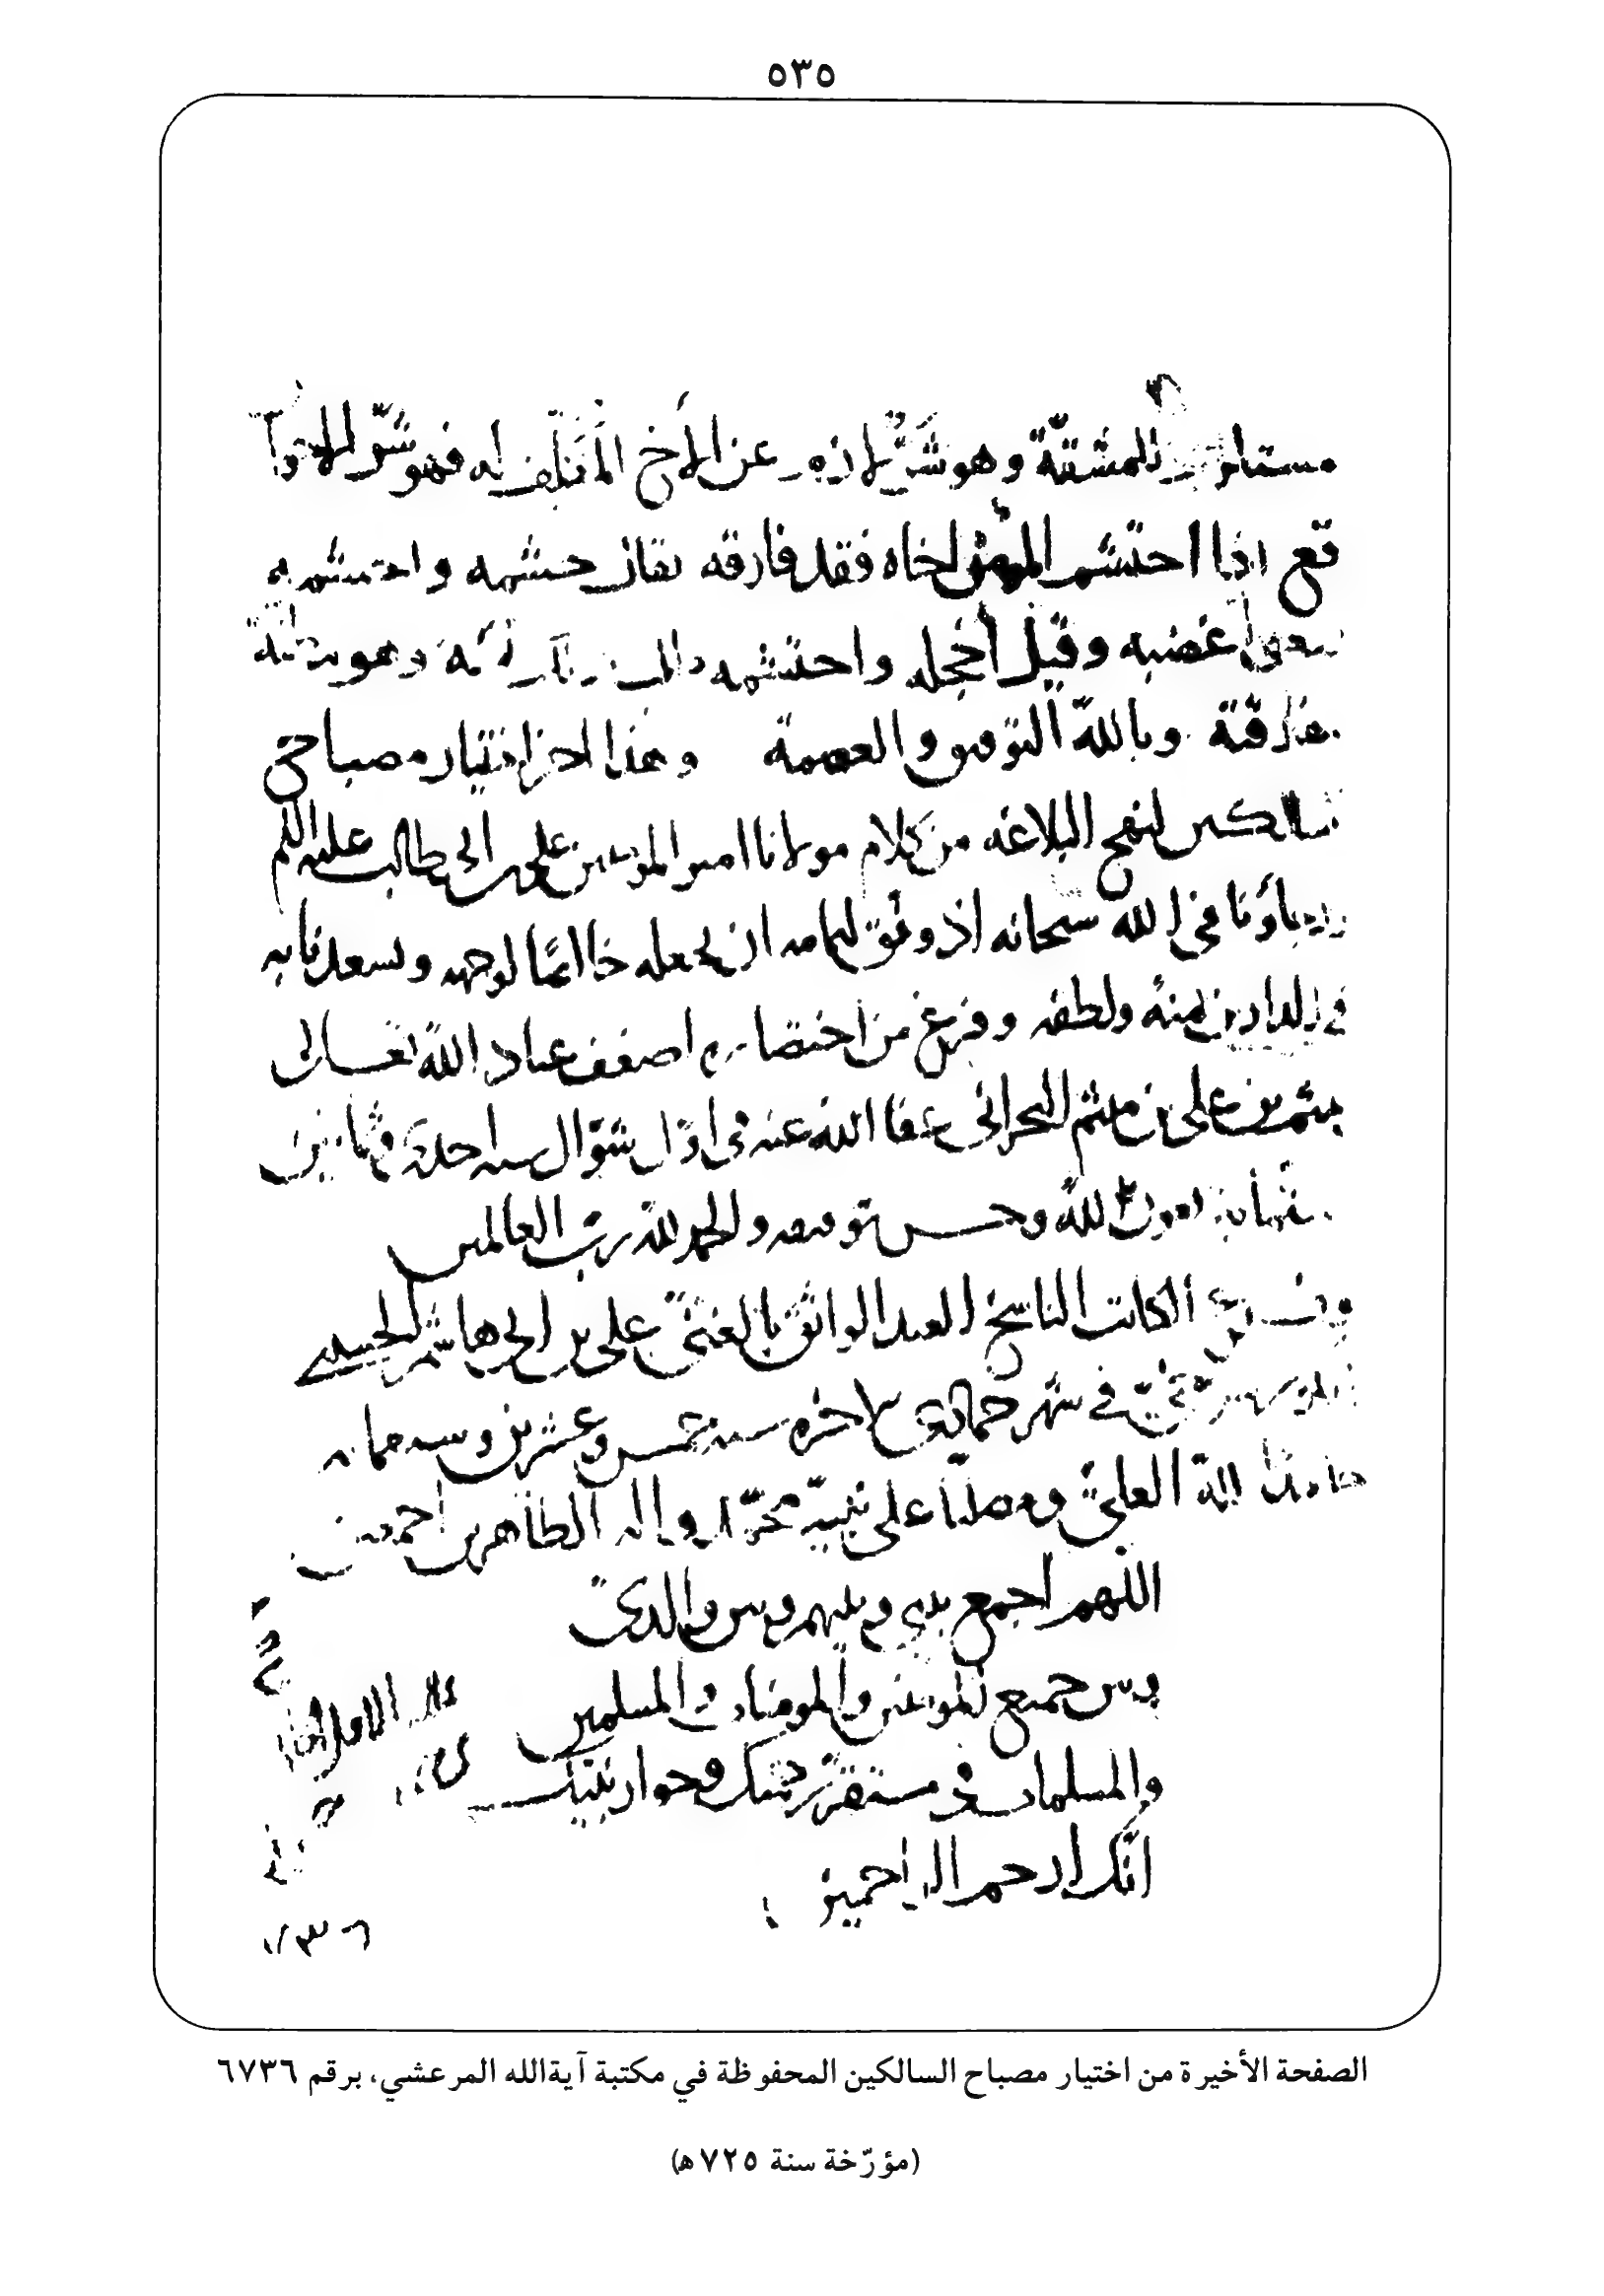 ٥٣٥
للمشقّة وهو شرّ لازم عن الأخ المتكلف له فهو شرّ الاخوان
قع اذا احتشم المؤمن اخاه فقد فارقه يقال حشمه واحتشمه
اغضبه وقيل أخجله واحتشمه وهو مظنة
مفارقة وبالله التوفيق والعصمة وهذا اخر اختيار مصباح
السالكين لنهج البلاغه من كلام مولانا امير المؤمنين على بن ابى طالب عليه السلم
الله سبحانه اذ وفق لتمامه ان يجعله خالصًا لوجهه ويسعدنا به
في الدارين بمنه ولطفه وفرغ من اختصاره اضعف عباد الله تعالى
ميثم بن على بن ميثم البحرانى عفا الله عنه فى اخر شوّال سنه احدى وثمانين
وستمائة بعون الله وحسن توفيقه والحمد لله رب العالمين
الكاتب الناسخ العبد الواثق بالغنىّ على بن ابى هاشم الحسينى
في شهر جمادى الاخره سنه خمس وعشرين وسبعمائه
حامدا لله العلىّ ومصليا على نبيّه محمّد واله الطاهرين اجمعين
اللهم اجمع بينى وبينهم وبين والدىّ
وبين جميع المؤمنين والمومنات والمسلمين
والمسلمات فى مستقر رحمتك وجوار نبيك
انّك ارحم الراحمين
٦٧٣٦
الصفحة الأخيرة من اختيار مصباح السالكين المحفوظة في مكتبة آيةالله المرعشي، برقم ٦٧٣٦
(مؤرّخة سنة ٧٢٥ه‍)